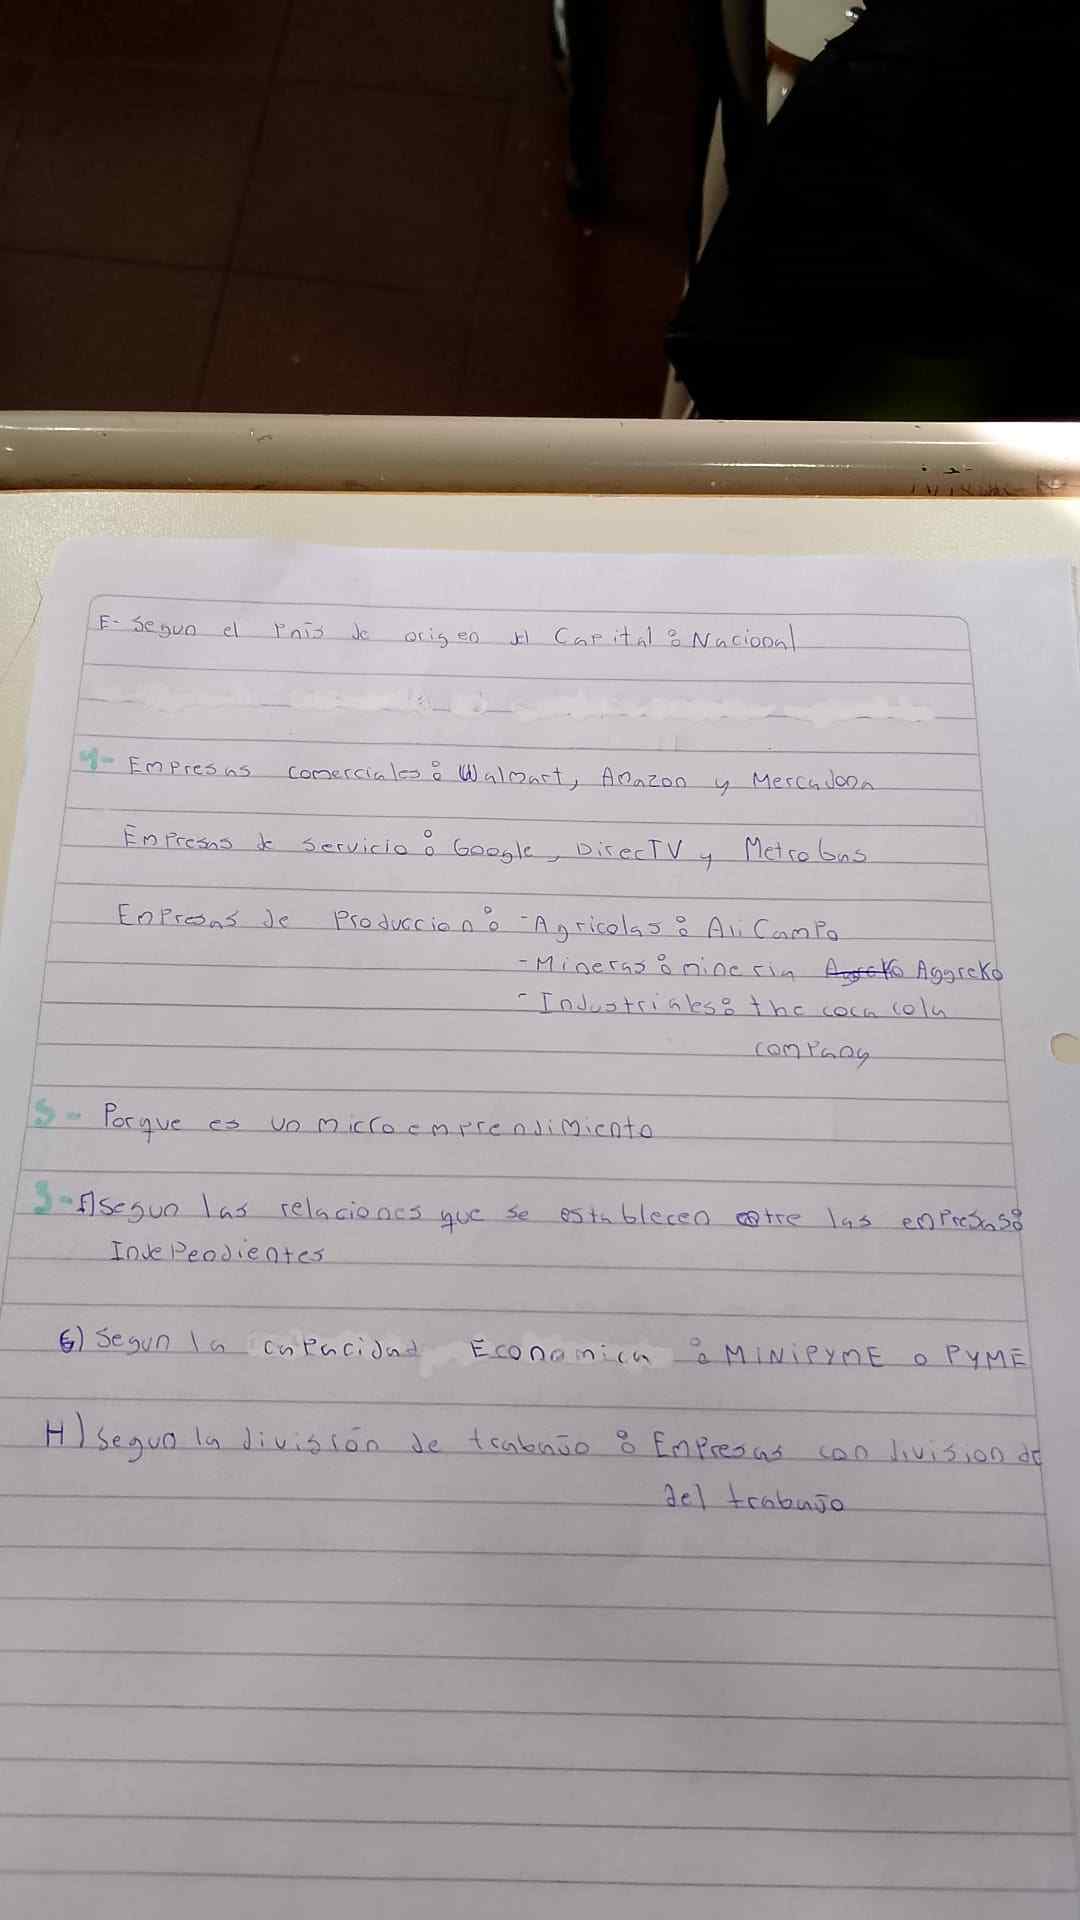 E- Segun el Pais de origen del Capital: Nacional
4- Empresas comerciales: Walmart, Amazon y Mercadona
Empresas de servicio: Google, DirecTV y Metrobus
Enpresas de Produccion: -Agricolas: AliCampo
-Mineras: mineria Aggreko
-Industriales: the coca cola
company
5- Porque es un microemprendimiento
3- F) Segun las relaciones que se establecen entre las enpresas:
Independientes
G) Segun la capacidad Economica: MINIPYME o PYME
H) Segun la división de trabajo: Empresas con division de
del trabajo